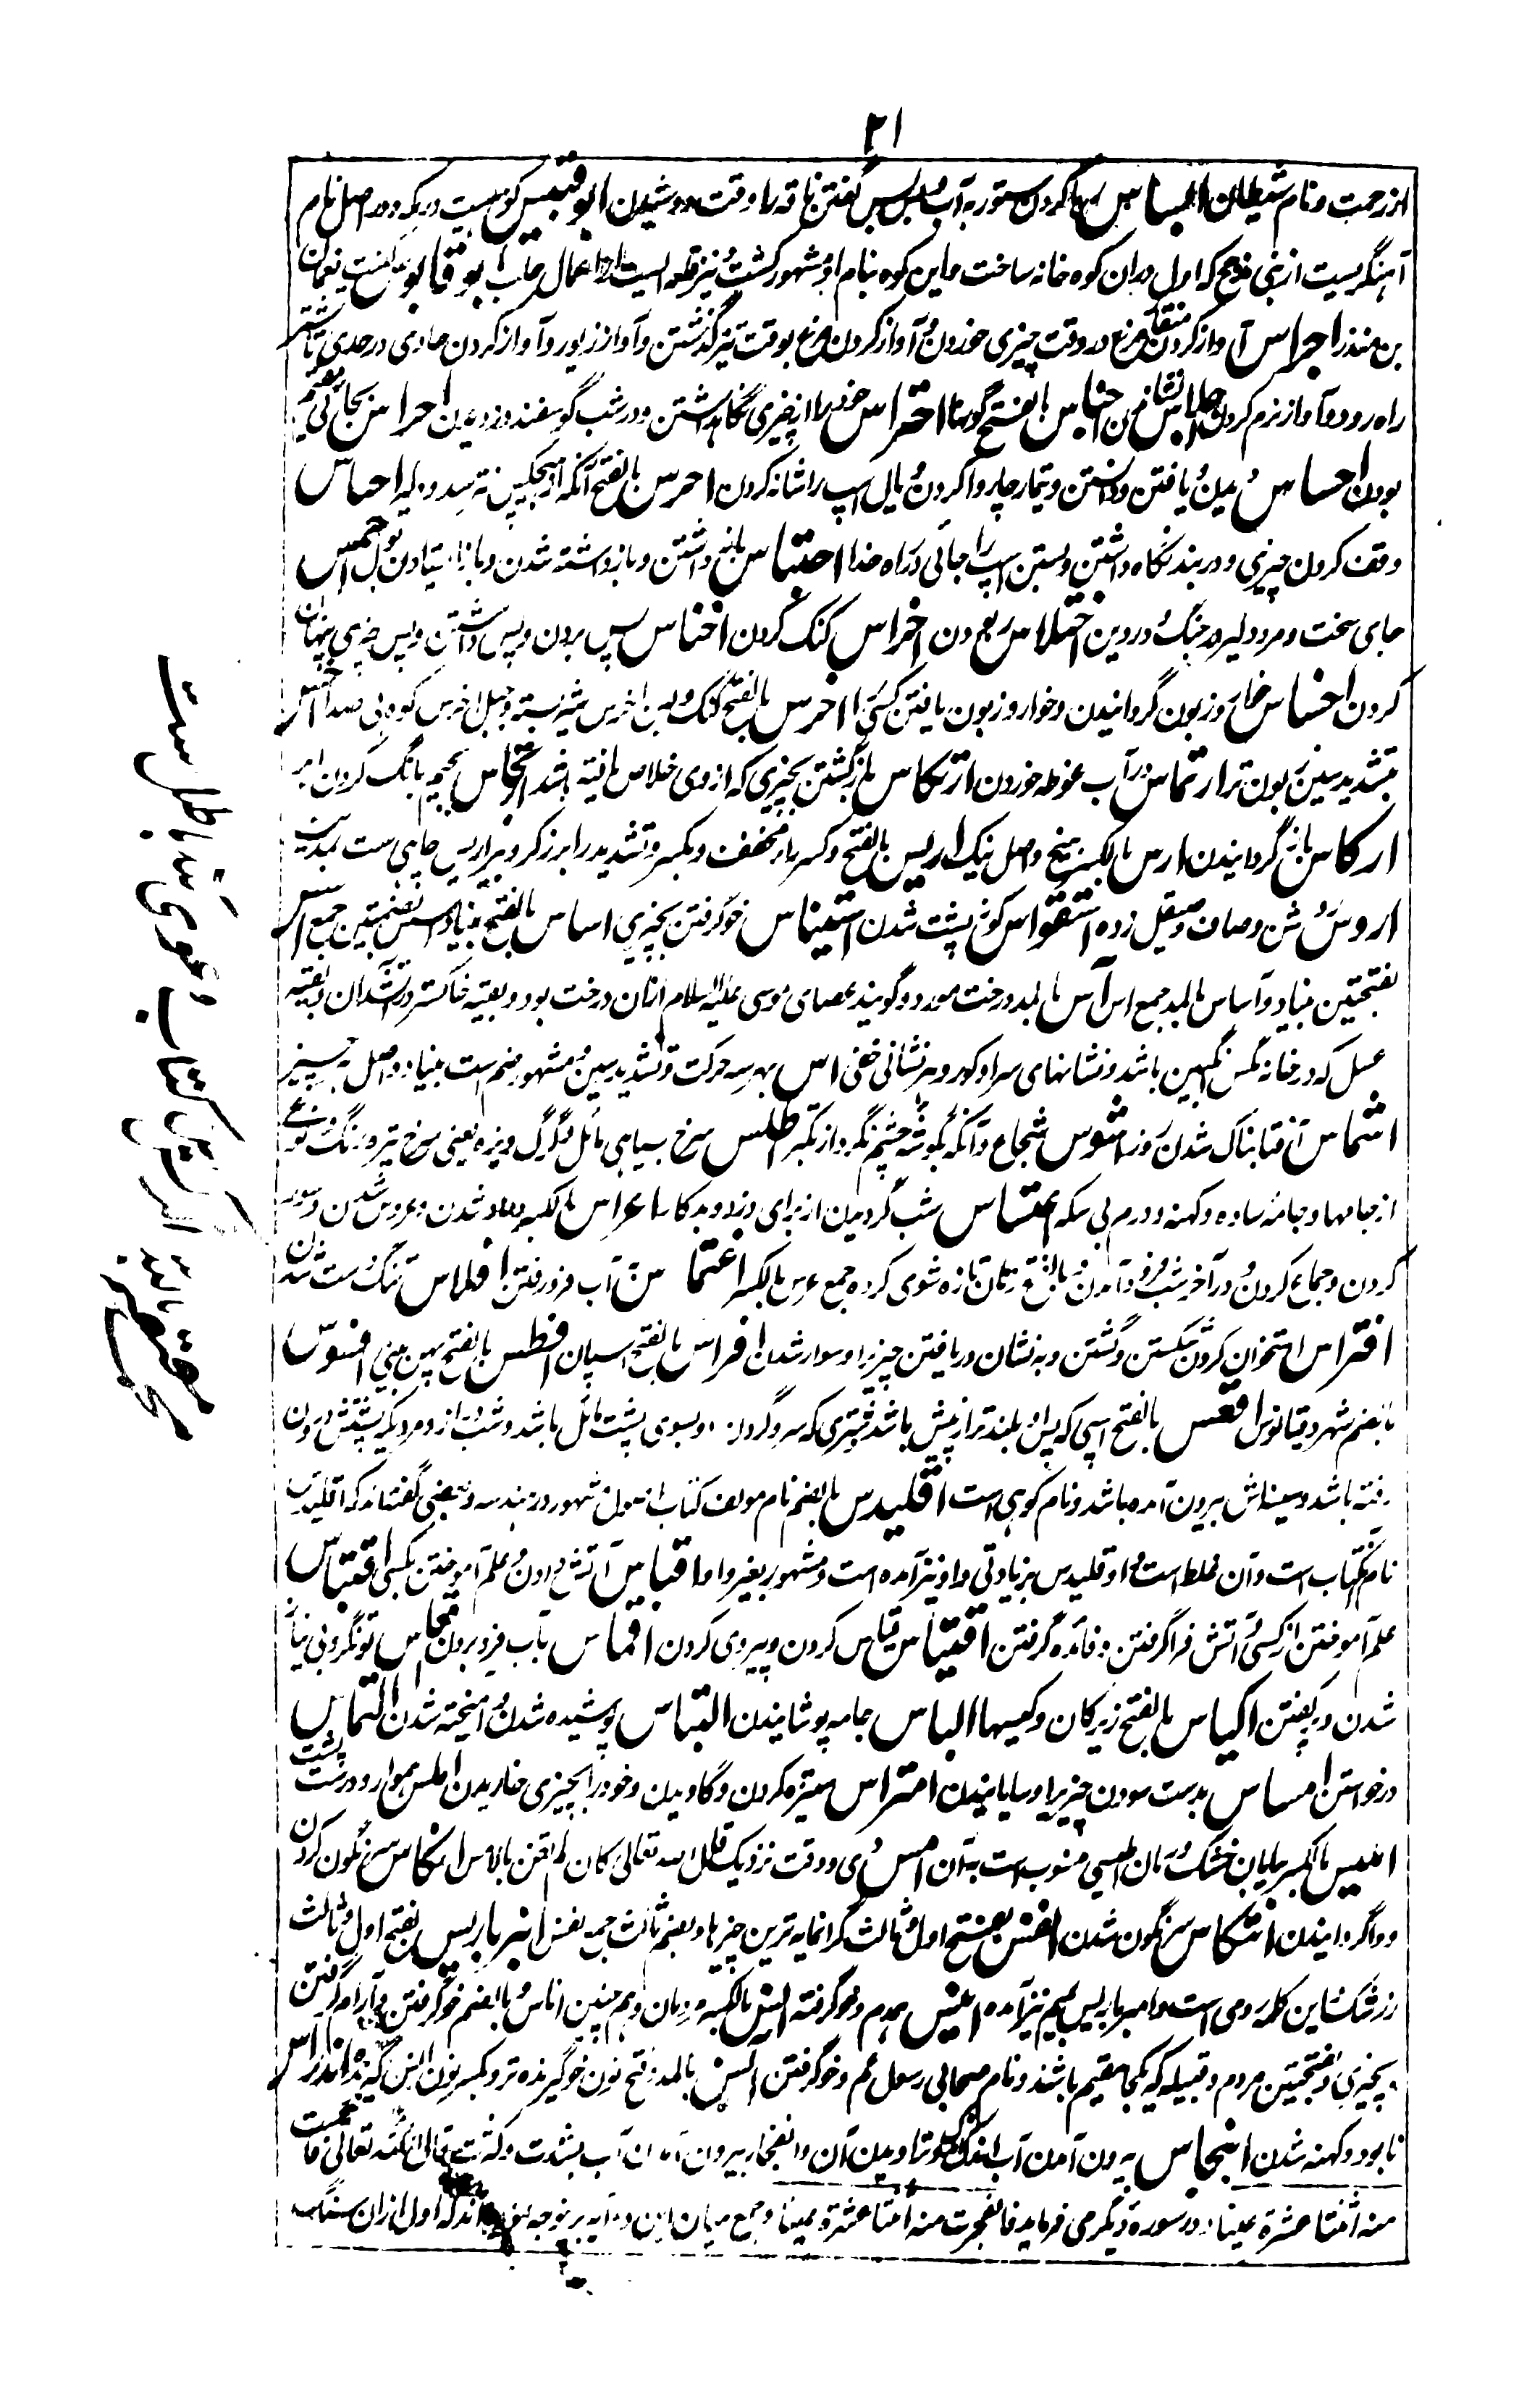 ۲۱
از رحمت و نام شیطان ابساس رها کردن ستور به آب و بس بس گفتن ناقه را وقت دوشیدن ابوقبیس کوهیست در مکه و در اصل نام
آهنگریست از بنی مذحج که اول در آن کوه خانه ساخت و این کوه بنام او مشهور گشت و نیز قلعه ایست از اعمال حلب ابو قابوس کنیت نعمان
بن منذر اجراس آواز کردن منقار مرغ در وقت چیزی خوردن و آواز کردن مرغ بوقت تیز گذشتن و آواز زیور و آواز کردن حادی در حدی تا شتر
راه رود و آواز نرم کردن اجلاس نشاندن اجناس بالفتح گونها احتراس خود را از چیزی نگاهداشتن و در شب گوسفند دزدیدن احراس بجائی مقیم
بودن احساس دیدن و یافتن و دانستن و تیمار چاروا کردن و یال اسپ را شانه کردن احرس بالفتح آنکه از هیچکس نترسد و دلیر احباس
وقف کردن چیزی و در بند نگاه داشتن و بستن اسپ را جائی در راه خدا احتباس باز داشتن و باز داشته شدن و باز ایستادن بول احمس
جای سخت و مرد دلیر در جنگ و در دین اختلاس ربودن اخراس گنگ کردن اخناس پس بردن و پس داشتن و پس چیزی پنهان
کردن اخساس خسیس و زبون گردانیدن و خوار و زبون یافتن کسی را اخرس بالفتح گنگ و لبن اخرس شیر بسته و جبل اخرس کوه بی صدا اخس
بتشدید سین زبون تر ارتماس در آب غوطه خوردن ارتکاس بازگشتن بچیزی که از وی خلاص یافته باشد ارتجاس بجیم بانگ کردن ابر
ارکاس بازگردانیدن ارس بالکسر بیخ و اصل نیک اریس بالفتح و کسر راء مخفف و بکسر و تشدید را برزگر و بئر اریس چاهی ست بمدینه
اروس شن و صاف و صیقل زده استقواس کوژ پشت شدن استیناس خو گرفتن بچیزی اساس بالفتح بنیاد اسس بضمتین جمع اسس
بفتحتین بنیاد و آساس بالمد جمع اس آس بالمد درخت مورد و گویند عصای موسی علیه السلام از آن درخت بود و بقیه خاکستر در آتشدان و بقیه
عسل که در خانه مگس انگبین باشد و نشانهای سرا و گور و هر نشانی خفی اس بهر سه حرکت و تشدید سین و مشهور ضم است بنیاد و اصل هر چیز
اشماس آفتابناک شدن روز اشوس شجاع و آنکه بگوشه چشم نگرد از تکبر اطلس سرخ بسیاهی مائل و گرگ ویزه یعنی سرخ تیره رنگ و نوعی
از جامها و جامه ساده و کهنه و درم بی سکه اعتساس شب گردیدن از برای دزد و بدکار اعراس بالکسر داماد شدن و عروس شدن و سور
کردن و جماع کردن و در آخر شب فرود آمدن و بالفتح زنان تازه شوی کرده جمع عرس بالکسر اغتماس در آب فرو رفتن افلاس تنگدست شدن
افتراس استخوان گردن شکستن و کشتن و به نشان دریافتن چیزی را و سوار شدن افراس بالفتح اسپان افطس بالفتح پهن بینی افسوس
بالضم شهر دقیانوس اقعس بالفتح اسپی که پس او بلند تر از پیش باشد و شتری که سر و گردن او بسوی پشت مائل باشد و شب دراز و مردیکه پشتش درون
رفته باشد و سینه اش بیرون آمده باشد و نام کوهی است اقلیدس بالضم نام مولف کتاب اصول مشهور در هندسه و بعضی گفته اند که اقلیدس
نام آن کتاب است و آن غلط است و اوقلیدس بزیادتی واو نیز آمده است و مشهور بغیر واو اقباس آتش دادن و علم آموختن بکسی اقتباس
علم آموختن از کسی و آتش فرا گرفتن و فائده گرفتن اقتیاس قیاس کردن و پیروی کردن اقماس بآب فرو بردن اقعاس توانگر و بی نیاز
شدن و اکیاس بالفتح زیرکان و کیسها الباس جامه پوشانیدن التباس پوشیده شدن و آمیخته شدن التماس
درخواستن امساس بدست سودن چیزی را و سایانیدن امتراس ستیزه کردن و کاویدن و خود را بچیزی خاریدن املس هموار و درست پشت
املیس بالکسر بیابان خشک و رمان املیسی منسوب است به آن امس دی و وقت نزدیک قال الله تعالی کان لم تغن بالامس انکاس سرنگون کردن
و واگردانیدن انتکاس سرنگون شدن انفس بفتح اول و ثالث گرانمایه ترین چیزها و بضم ثالث جمع نفس انبرباریس بفتح اول و ثالث
زرشک و این کلمه رومی است و امبرباریس بمیم نیز آمده انیس همدم و خو گرفته انس بالکسر مردمان و همچنین اناس و بالضم خو گرفتن و آرام گرفتن
بچیزی و بفتحتین مردم و قبیله که یکجا مقیم باشند و نام صحابی رسول صلعم و خو گرفتن آنس بالمد و فتح نون خو گیرنده تر و بکسر نون انس گیرنده اندراس
نابود و کهنه شدن انبجاس بیرون آمدن آب اندک و تراویدن آن و انفجار بیرون آمدن آب بشدت و کثرت قال الله تعالی فانبجست
منه اثنتا عشرة عینا و در سوره دیگر می فرماید فانفجرت منه اثنتا عشرة عینا و جمع میان این دو آیه بر توجیه نموده اند که اول از آن سنگ